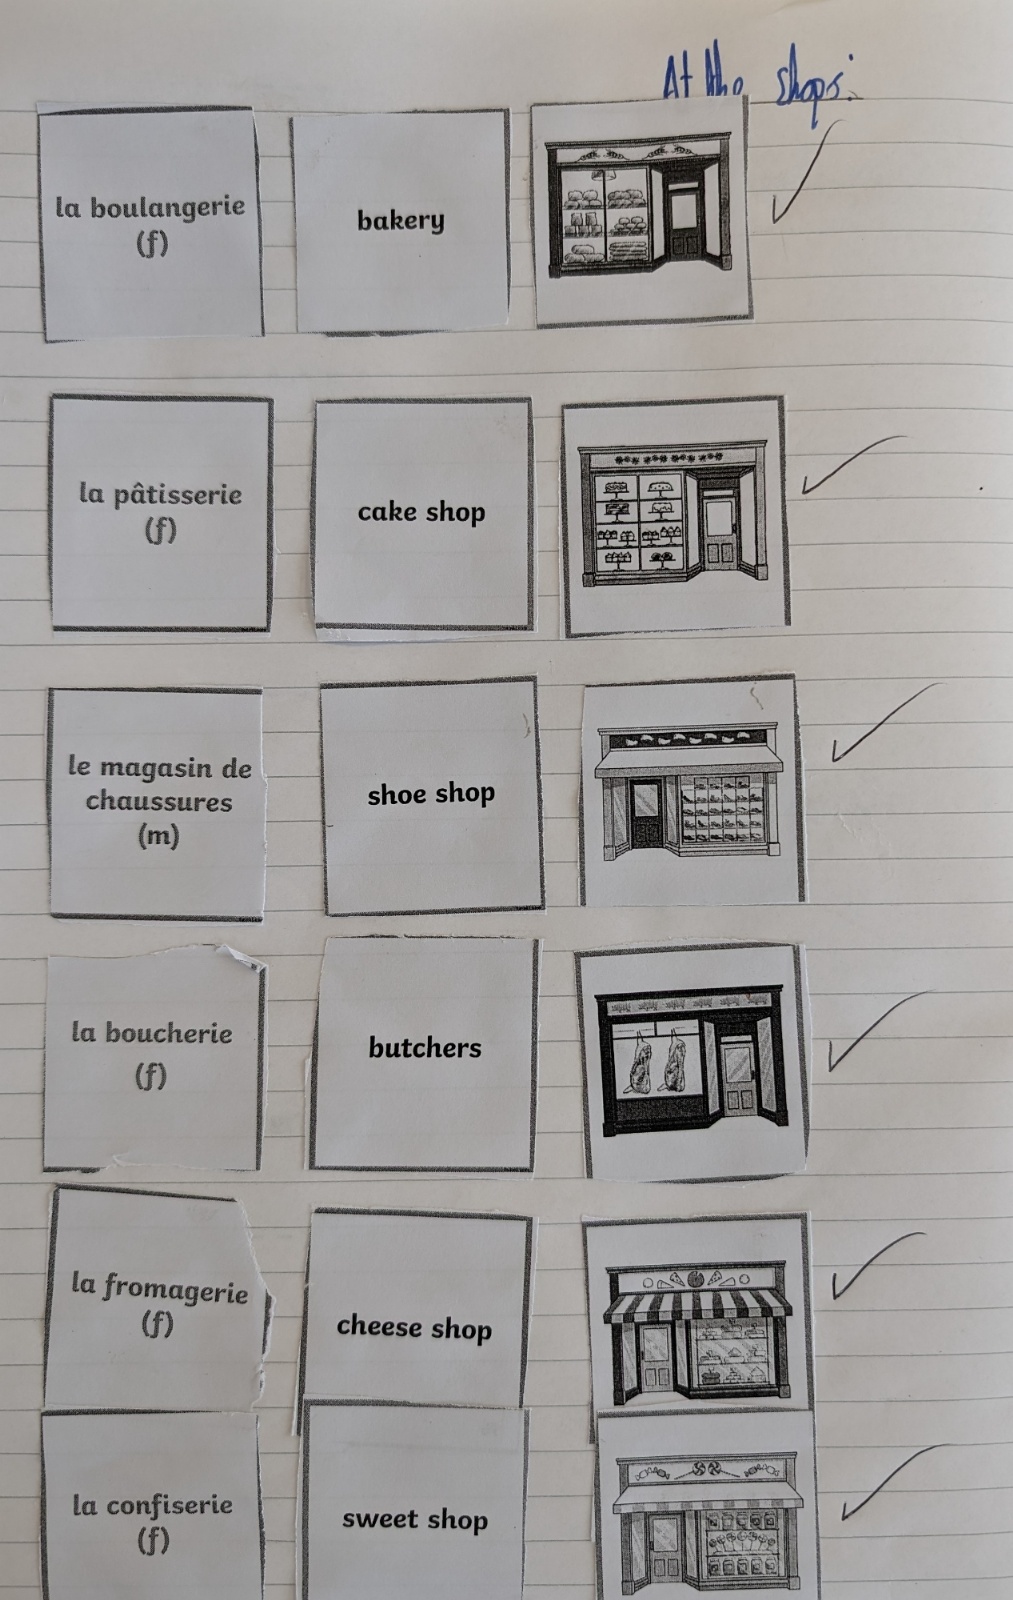 At the shops:
la boulangerie
(f)
bakery
la pâtisserie
(f)
cake shop
le magasin de
chaussures
(m)
shoe shop
la boucherie
(f)
butchers
la fromagerie
(f)
cheese shop
la confiserie
(f)
sweet shop